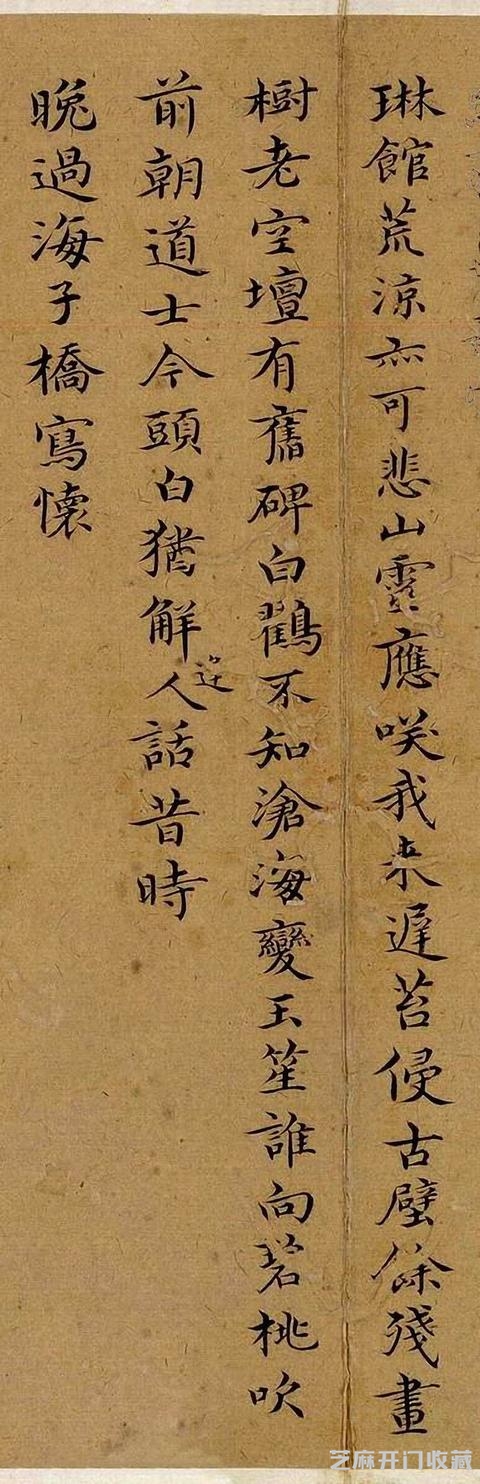 琳館荒涼亦可悲山靈應咲我来遲苔侵古壁餘殘畫
樹老空壇有舊碑白鸖不知滄海變玉笙誰向碧桃吹
前朝道士今頭白猶解人話昔時
迎
晚過海子橋寫懷
芝麻开门收藏